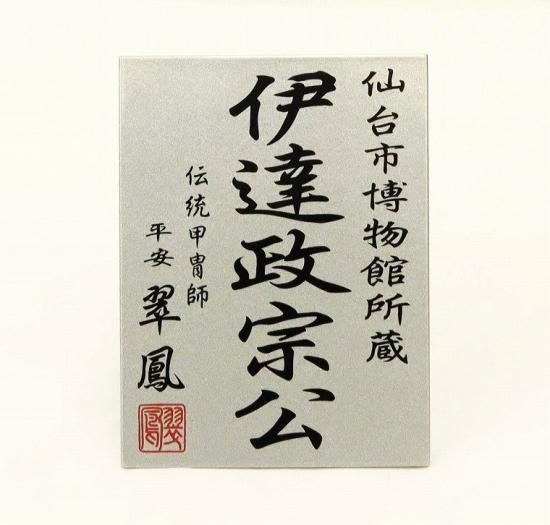 仙台市博物館所蔵
伊達政宗公
伝統甲冑師
平安 翠鳳
翠鳳